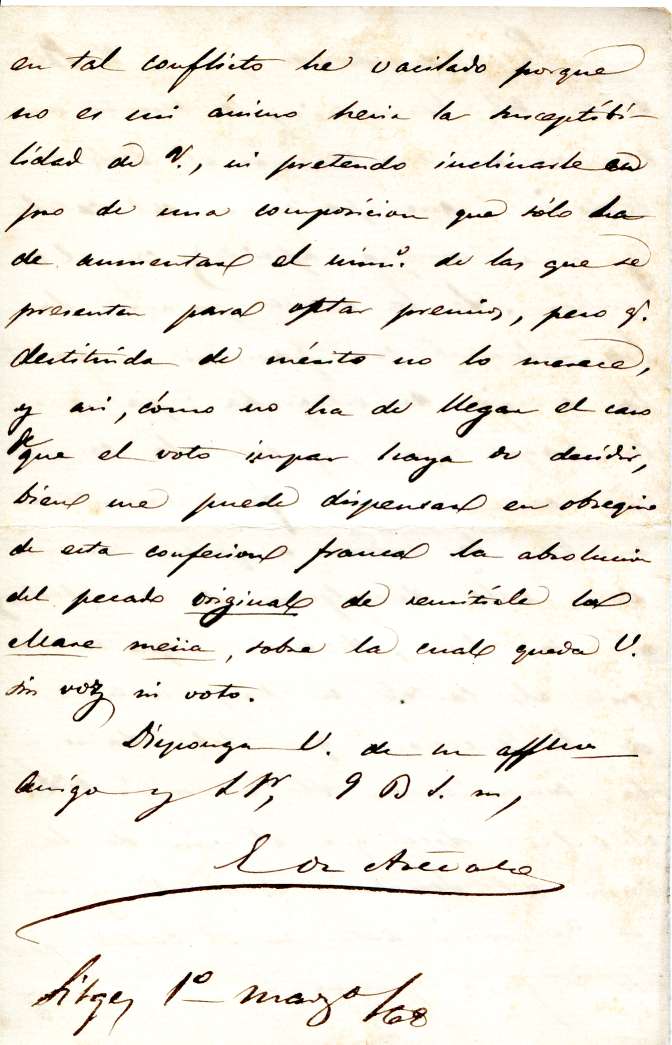 en tal conflicto he vacilado porque
no es mi ánimo herir la susceptibi-
lidad de V., ni pretendo inclinarle en
pro de una composicion que sólo ha
de aumentar el númº. de las que se
presenten para optar premios, pero q.
destituida de mérito no lo merece,
y asi, cómo no ha de llegar el caso
de que el voto impar haya de decidir,
bien me puede dispensar en obsequio
de esta confesion franca la absolucion
del pecado original de remitirle la
Mare meua, sobre la cual queda V.
sin voz ni voto.
Disponga V. de su affmo
Amigo y S. S. Q B S. m,
E de Arévalo
Sitges 1º marzo/68